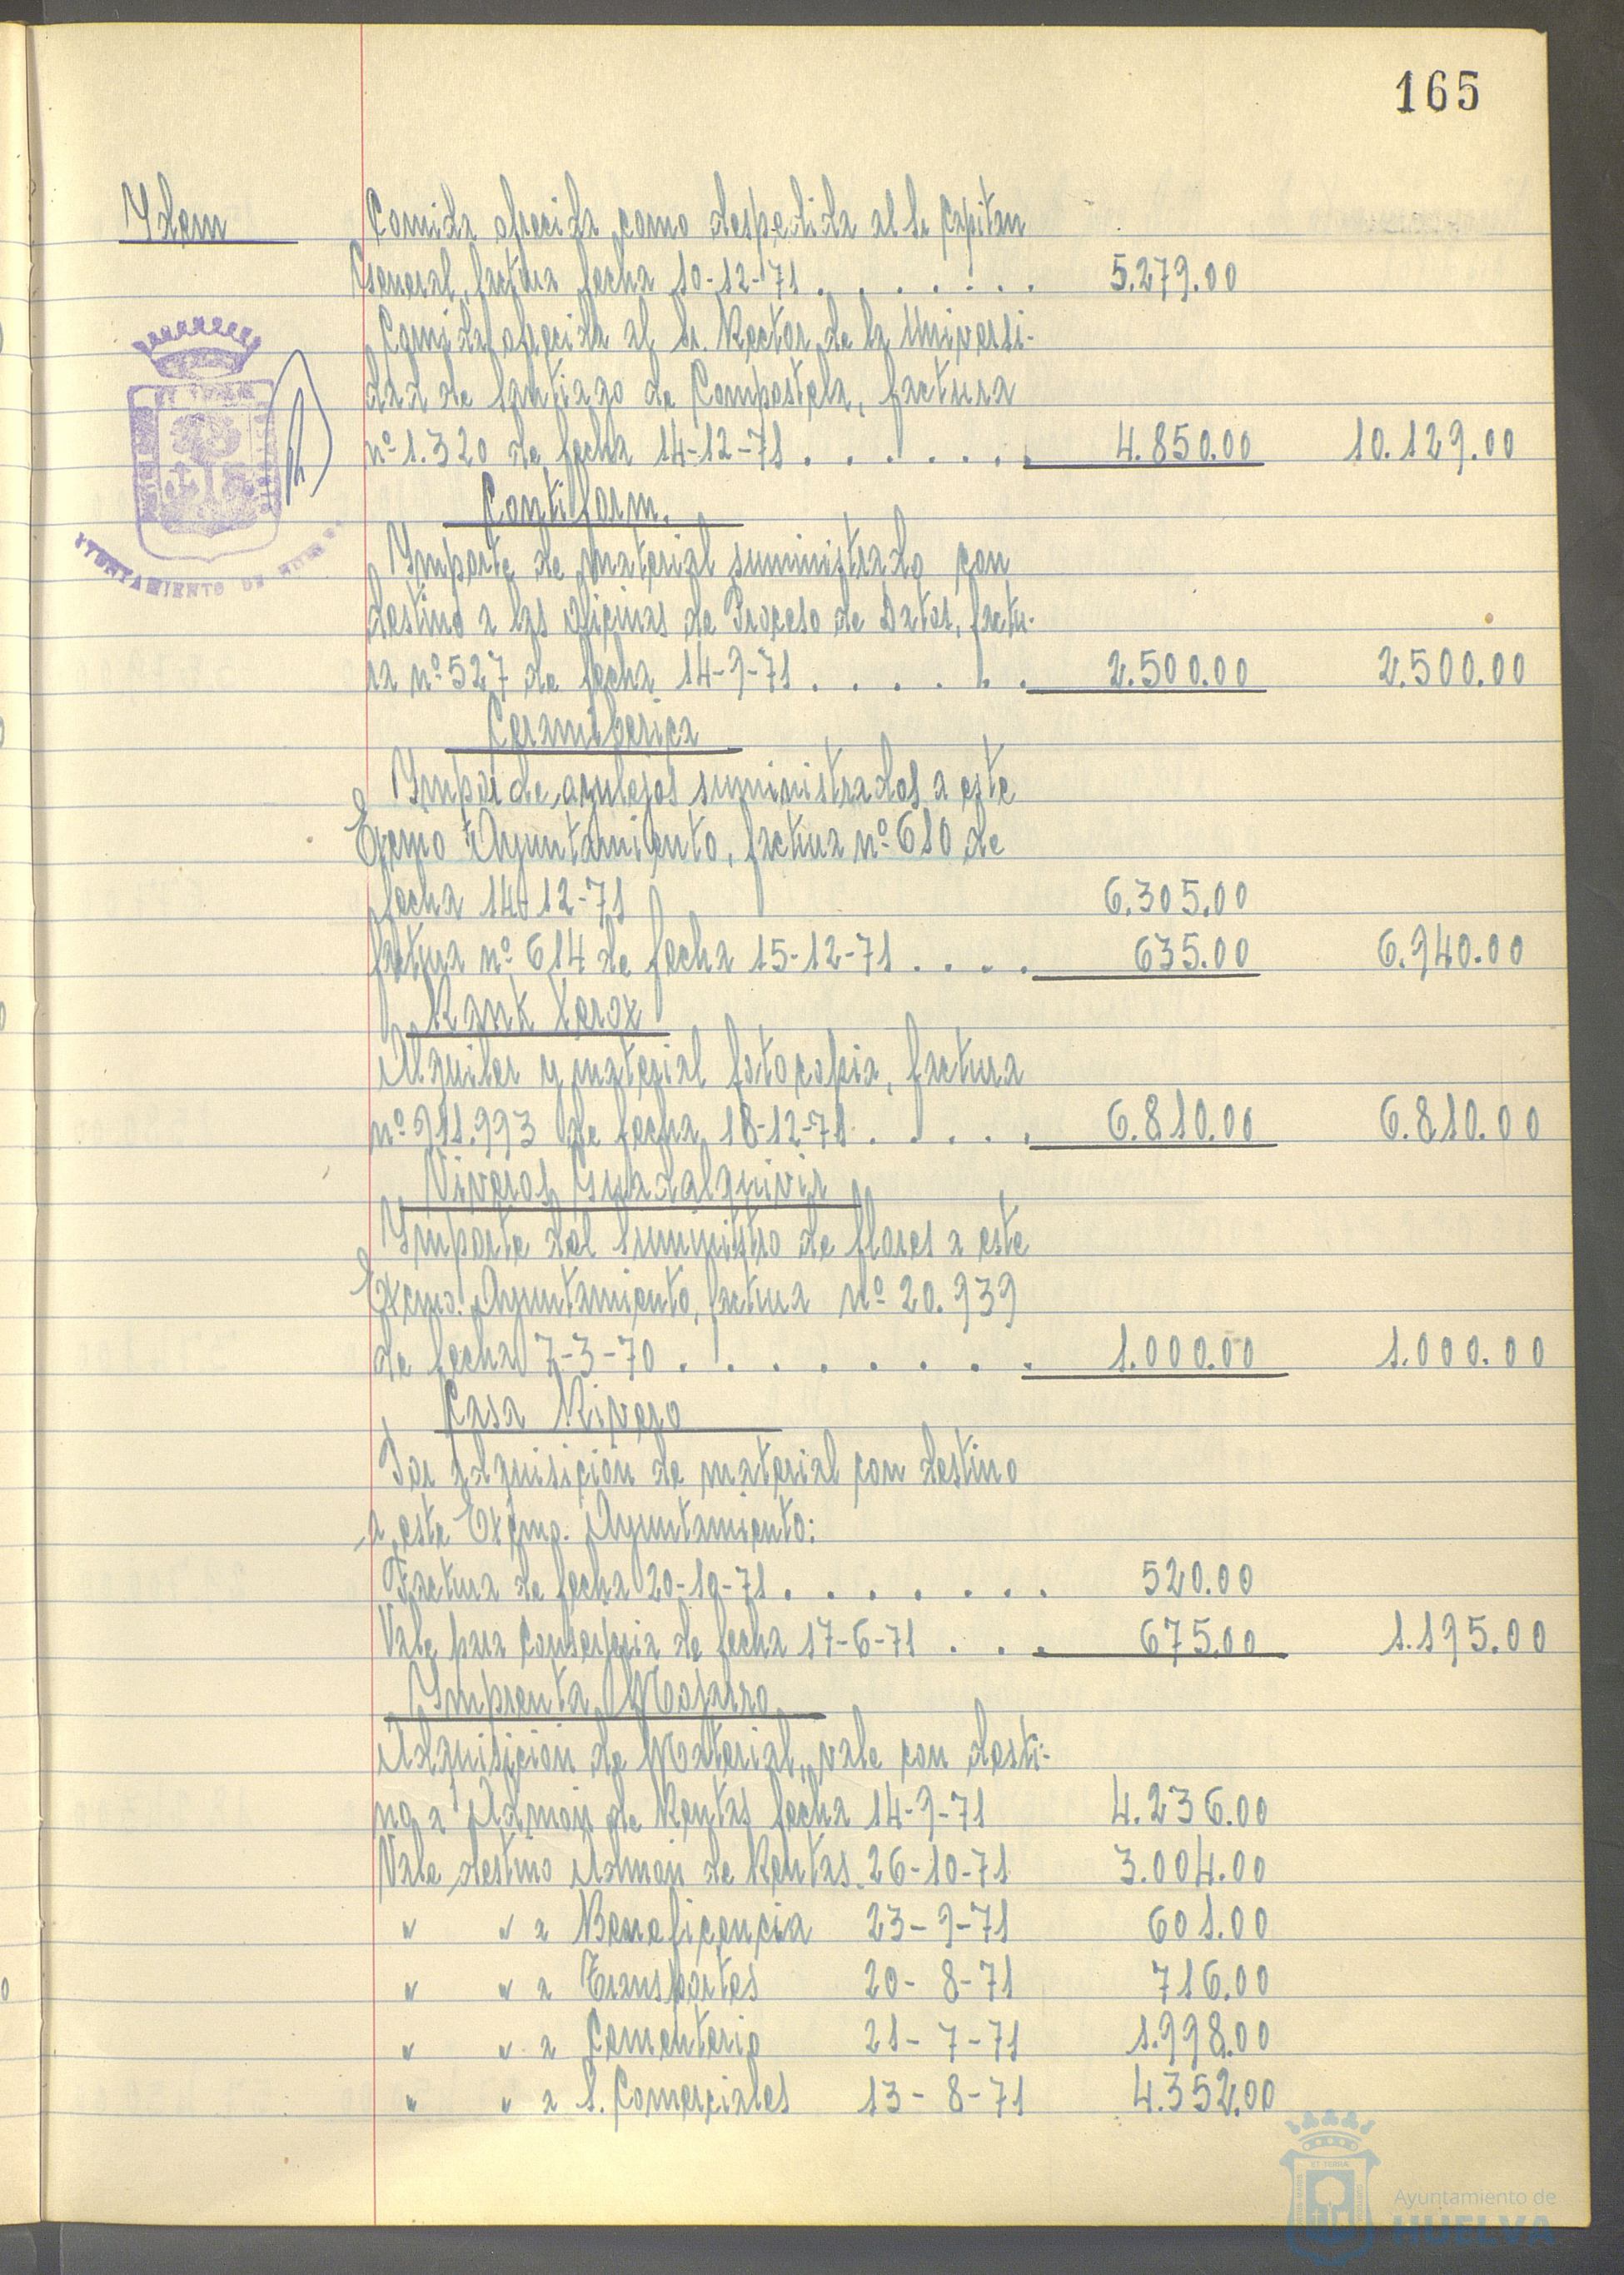 165
Ydem
Comida ofrecida como despedida al Sr Capitan
General, factura fecha 10-12-71 . . . . . . . 5.279.00
Comida ofrecida al Sr. Rector de la Universi-
dad de Santiago de Compostela, factura
nº 1.320 de fecha 14-12-71 . . . . . . . 4.850.00 10.129.00
Contiform.
Ymporte de material suministrado con
destino a las Oficinas de Proceso de Datos, factu-
ra nº 527 de fecha 14-9-71 . . . . . . 2.500.00 2.500.00
Ceramiberica
Ympor de azulejos suministrados a este
Excmo Ayuntamiento, factura nº 610 de
fecha 14-12-71 6.305.00
factura nº 614 de fecha 15-12-71 . . . . 635.00 6.940.00
Rank Xerox
Alquiler y material fotocopia, factura
nº 911.993 de fecha 18-12-71 . . . . . 6.810.00 6.810.00
Viveros Guadalquivir
Ymporte del suministro de flores a este
Excmo. Ayuntamiento, factura nº 20.939
de fecha 7-3-70 . . . . . . . . 1.000.00 1.000.00
Casa Rivero
Por adquisición de material con destino
a este Excmo. Ayuntamiento:
Factura de fecha 20-10-71 . . . . . . . 520.00
Vale para Conserjeria de fecha 17-6-71 . . . 675.00 1.195.00
Ymprenta Mojarro
Adquisición de Material, vale con desti-
no a Admón de Rentas fecha 14-9-71 4.236.00
Vale destino Admón de Rentas 26-10-71 3.004.00
" " a Beneficencia 23-9-71 601.00
" " a Transportes 20-8-71 716.00
" " a Cementerio 21-7-71 1.998.00
" " a S. Comerciales 13-8-71 4.352.00
AYUNTAMIENTO DE HUELVA
Ayuntamiento de
HUELVA